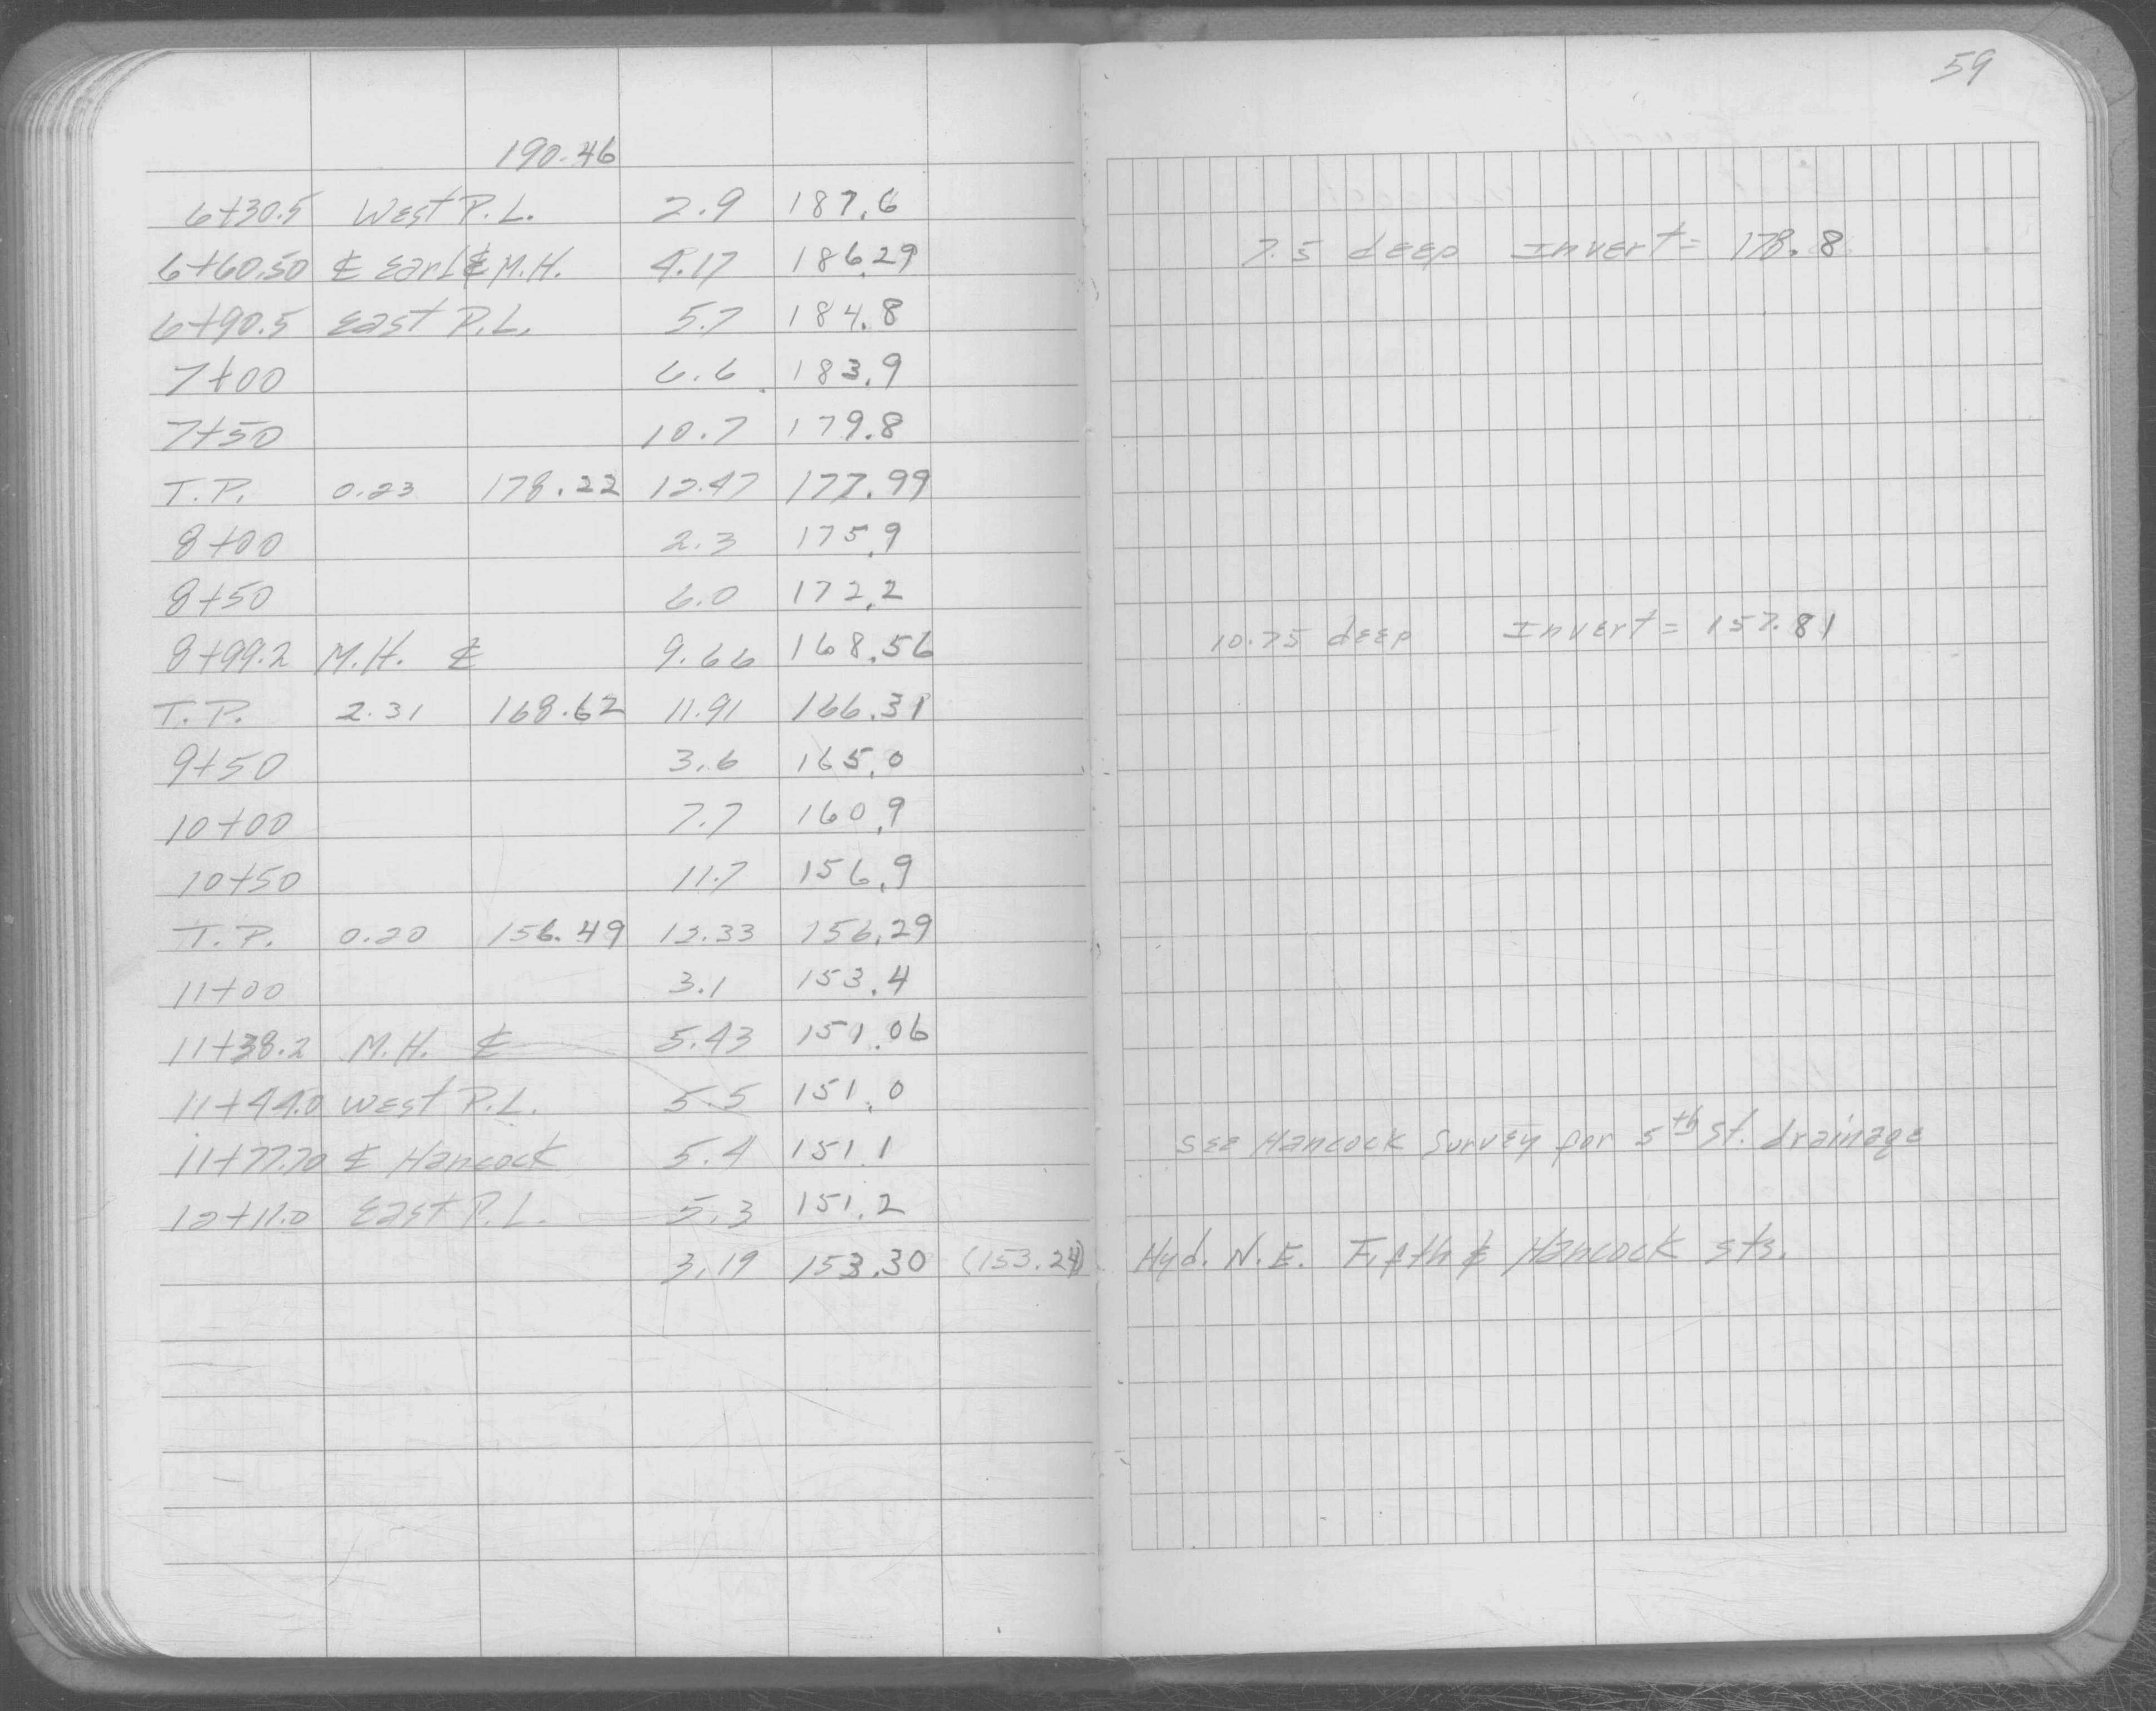 59
190.46
6+30.5 West P.L. 2.9 187.6
6+60.50 ℄ Earl ℄ M.H. 4.17 186.29 7.5 deep Invert = 178.8
6+90.5 East P.L. 5.7 184.8
7+00 6.6 183.9
7+50 10.7 179.8
T.P. 0.23 178.22 12.47 177.99
8+00 2.3 175.9
8+50 6.0 172.2
8+99.2 M.H. ℄ 9.66 168.56 10.75 deep Invert = 157.81
T.P. 2.31 168.62 11.91 166.31
9+50 3.6 165.0
10+00 7.7 160.9
10+50 11.7 156.9
T.P. 0.20 156.49 12.33 156.29
11+00 3.1 153.4
11+38.2 M.H. ℄ 5.43 151.06
11+44.0 West P.L. 5.5 151.0
11+77.70 ℄ Hancock 5.4 151.1 See Hancock Survey for 5th St. drainage
12+11.0 East P.L. 5.3 151.2
3.19 153.30 (153.24) Hyd. N.E. Fifth & Hancock sts.